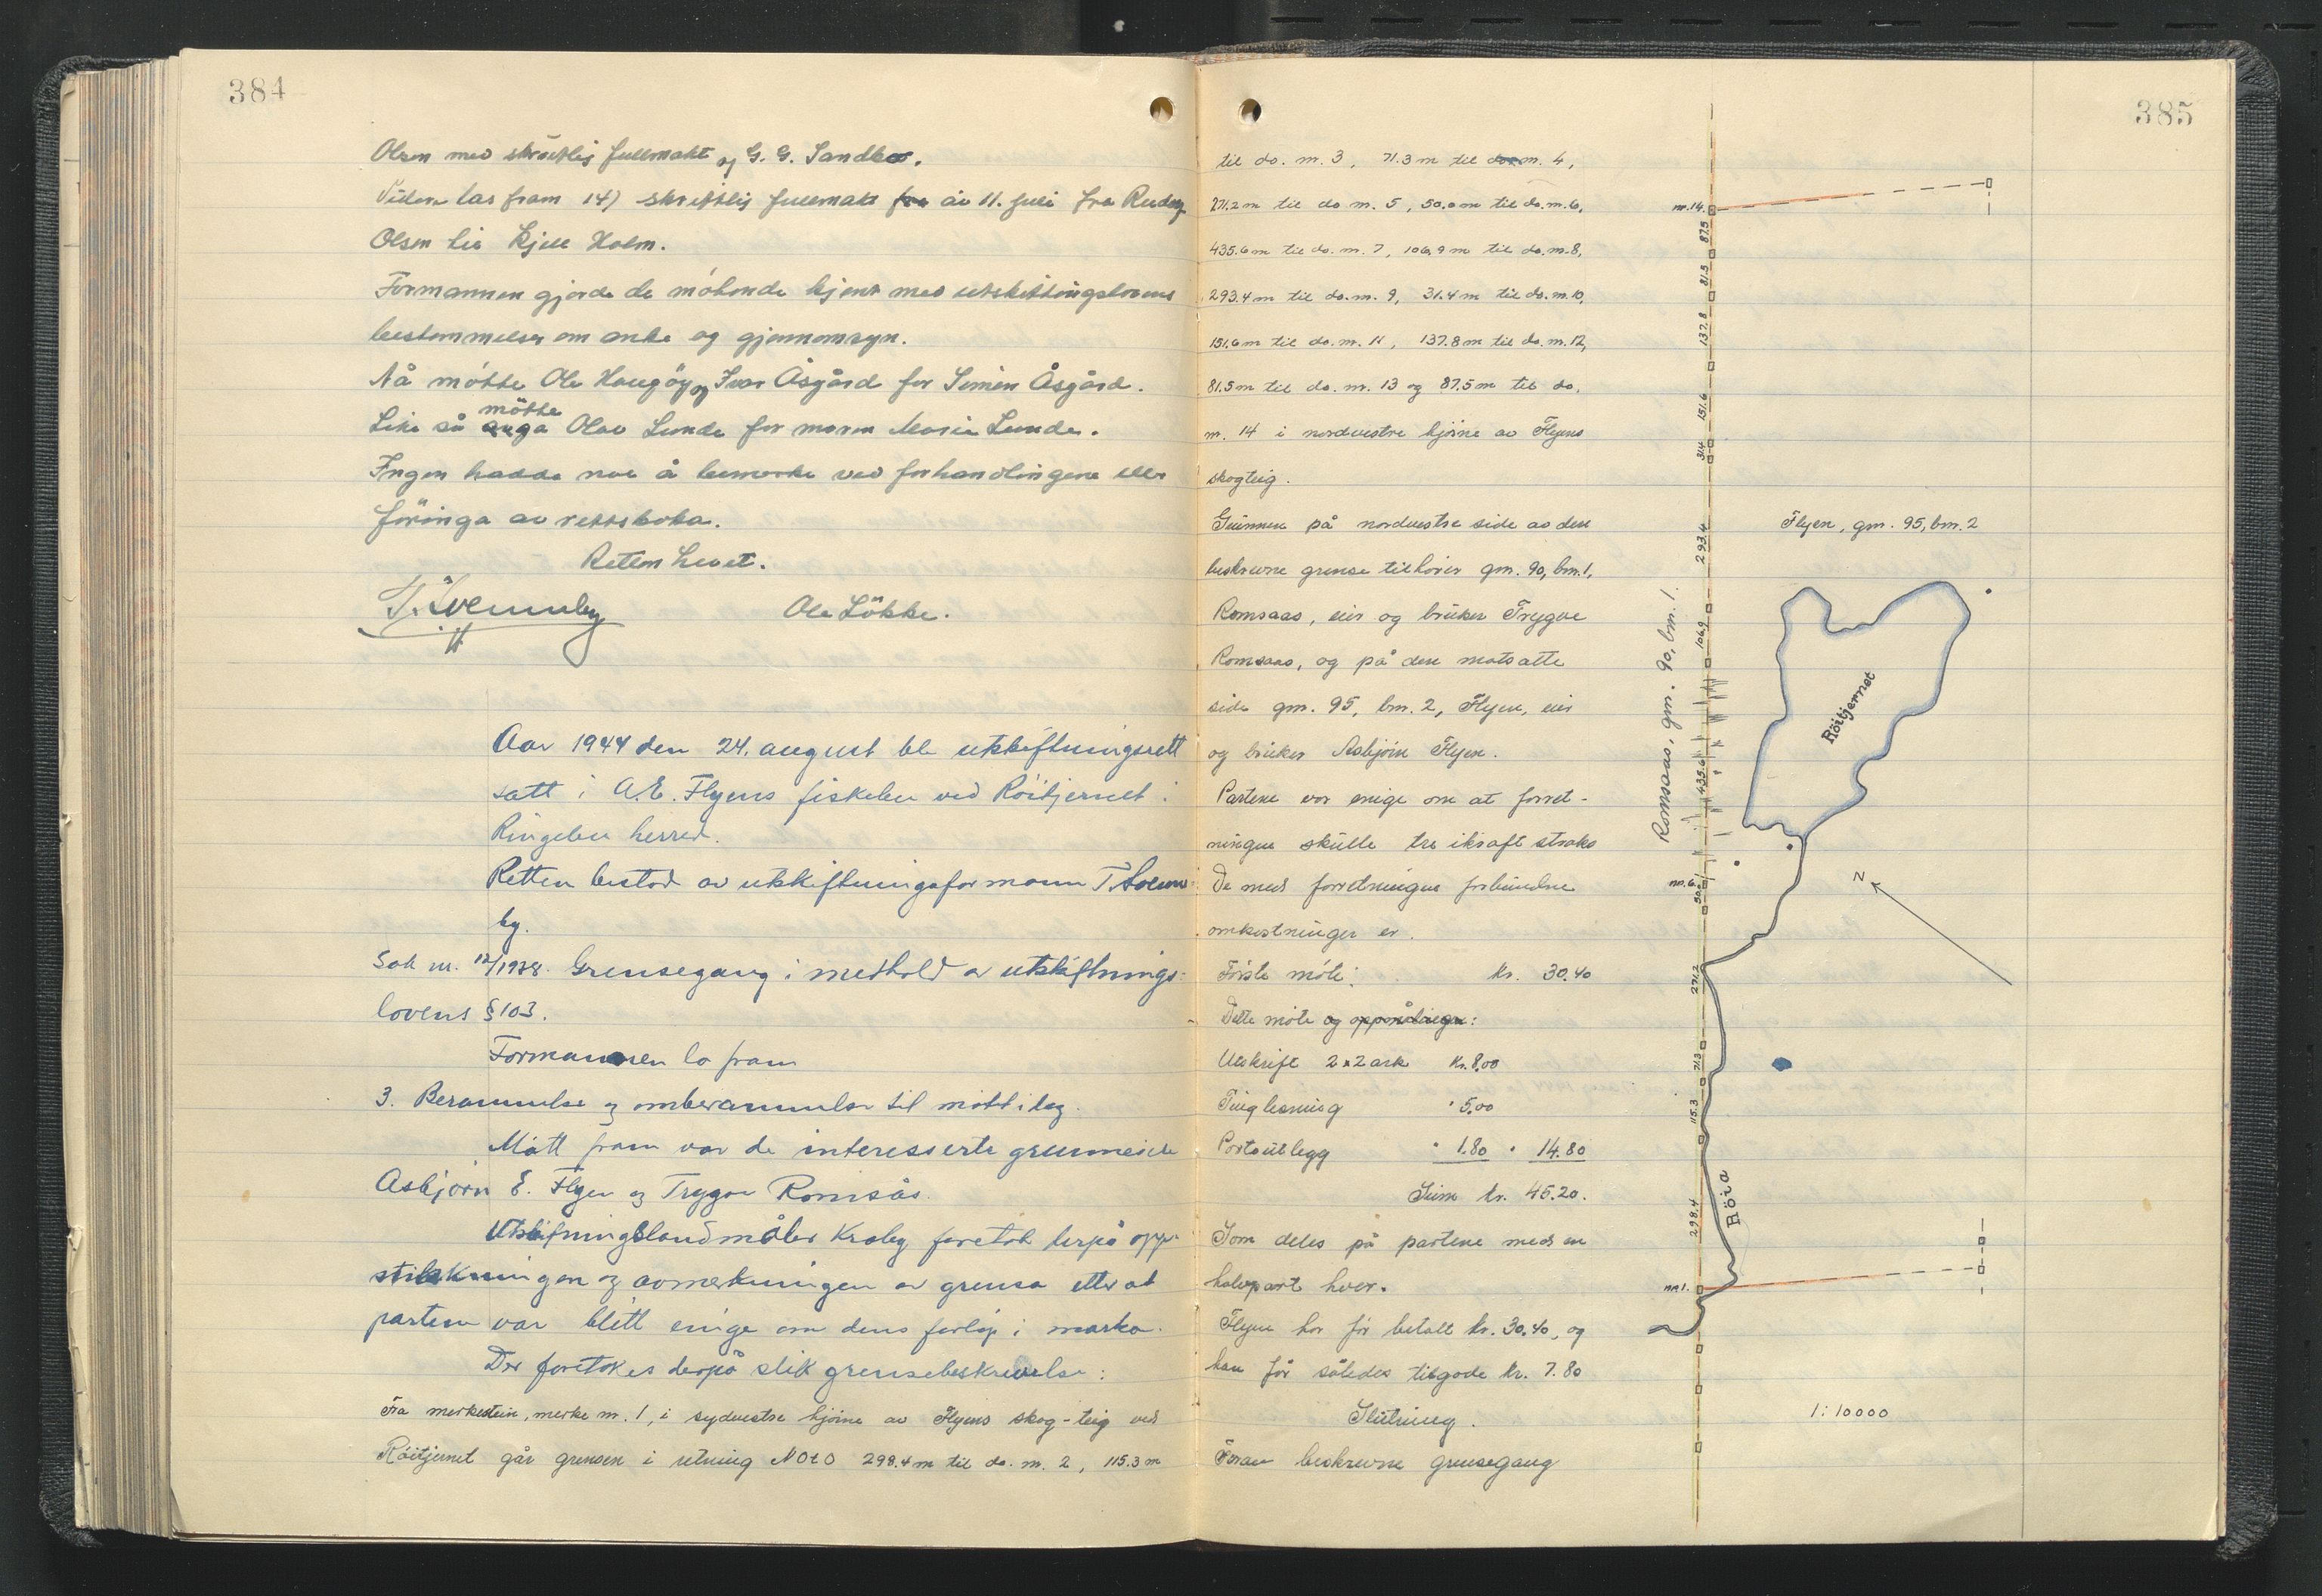 384
Olsen med skriftlig fullmakt og G. G. Sandbo.
Videre las fram 14) skriftlig fullmakt fra av 11. juli fra Rudolf
Olsen til Kjell Holm.
Formannen gjorde de møtende kjent med utskiftingslovens
bestemmelser om anke og gjennomsyn.
Nå møtte Ole Haugøy og Ivar Åsgård for Simen Åsgård.
møtte
Like så Olav Lunde for moren Marie Lunde.
Ingen hadde noe å bemerke ved forhandlingene eller
føringa av rettsboka.
Retten hevet.
T. Svennby
Ole Løkke.
Aar 1944 den 24. august ble utskiftningsrett
satt i A. E. Flyens fiskebu ved Röitjernet i
Ringebu herred.
Retten bestod av utskiftningsformann T. Svenn-
by.
Sak nr. 12/1938. Grensegang i medhold av utskiftnings-
lovens § 103.
Formannen la fram
3. Berammelse og omberammelse til møtt i dag.
Møtt fram var de interesserte grunneiere
Asbjørn E. Flyen og Trygve Romsås.
Utskiftningslandmåler Kraby foretok derpå opp-
stikkningen og avmerkningen av grensa etter at
partene var blitt enige om dens forløp i marka.
Der foretokes derpå slik grensebeskrivelse:
Fra merkestein, merke nr. 1, i sydvestre hjørne av Flyens skog-teig ved
Röitjernet går grensen i retning NOtO 298.4 m til do. nr. 2, 115.3 m
385
til do. nr. 3, 71.3 m til do. nr. 4,
271.2 m til do nr. 5, 50.0 m til do. nr. 6,
435.6 m til do. nr. 7, 106.9 m til do. nr. 8,
293.4 m til do. nr. 9, 31.4 m til do. nr. 10,
151.6 m til do. nr. 11, 137.8 m til do. nr. 12,
81.5 m til do. nr. 13 og 87.5 m til do.
nr. 14 i nordvestre hjørne av Flyens
skogteig.
Grunnen på nordvestre side av den
beskrevne grense tilhører gnr. 90, bnr. 1,
Romsaas, eier og bruker Trygve
Romsaas, og på den motsatte
side gnr. 95, bnr. 2, Flyen, eier
og bruker Asbjørn Flyen.
Partene var enige om at forret-
ningen skulle tre ikraft straks
De med forretningen forbundne
omkostninger er.
Første møte: kr. 30.40
Dette møte og oppmålingen:
Utskrift 2x2 ark kr. 8,00
Tinglesning " 5,00
Portoutlegg " 1.80 " 14.80
Sum kr. 45.20.
Som deles på partene med en
halvpart hver.
Flyen har før betalt kr. 30.40, og
han får således tilgode kr. 7.80
Slutning.
Foran beskrevne grensegang
nr. 14.
87.5
81.5
137.8
151.6
31.4
293.4
Flyen, gnr. 95, bnr. 2
Romsaas, gnr. 90, bnr. 1.
106.9
Röitjernet
435.6
nr. 6.
50.0
N
271.2
71.3
115.3
Röia
298.4
nr 1.
1:10000